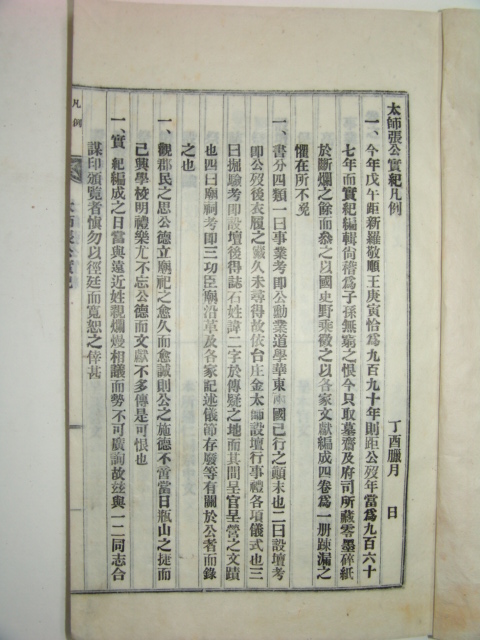 太師張公實紀凡例
丁酉臘月　日
一、今年戊午距新羅敬順王庚寅恰爲九百九十年則距公歿年當爲九百六十
七年而實紀編輯尙落爲子孫無窮之恨今只取墓齋及府司所藏零墨碎紙
於斷爛之餘而叅之以國史野乘徵之以各家文獻編成四卷爲一册踈漏之
懼在所不免
一、書分四類一曰事業考即公勳業道學華東兩國已行之顚末也二曰設壇考
即公歿後衣履之藏久未尋得故依台庄金太師設壇行事禮各項儀式也三
曰掘驗考即設壇後得誌石姓諱二字於傳疑之地而其間呈官呈營之文蹟
也四曰廟祠考即三功臣廟沿革及各家記述儀節存廢等有關於公者而錄
之也
一、觀郡民之思公德立廟祀之愈久而愈誠則公之施德不啻當日瓶山之捷而
已興學校明禮樂尤不忘公德而文獻不多傳是可恨也
一、實紀編成之日當與遠近姓親爛熳相議而勢不可廣詢故玆與一二同志合
謀印頒覽者愼勿以徑廷而寬恕之倖甚
凡例
太師張公實紀